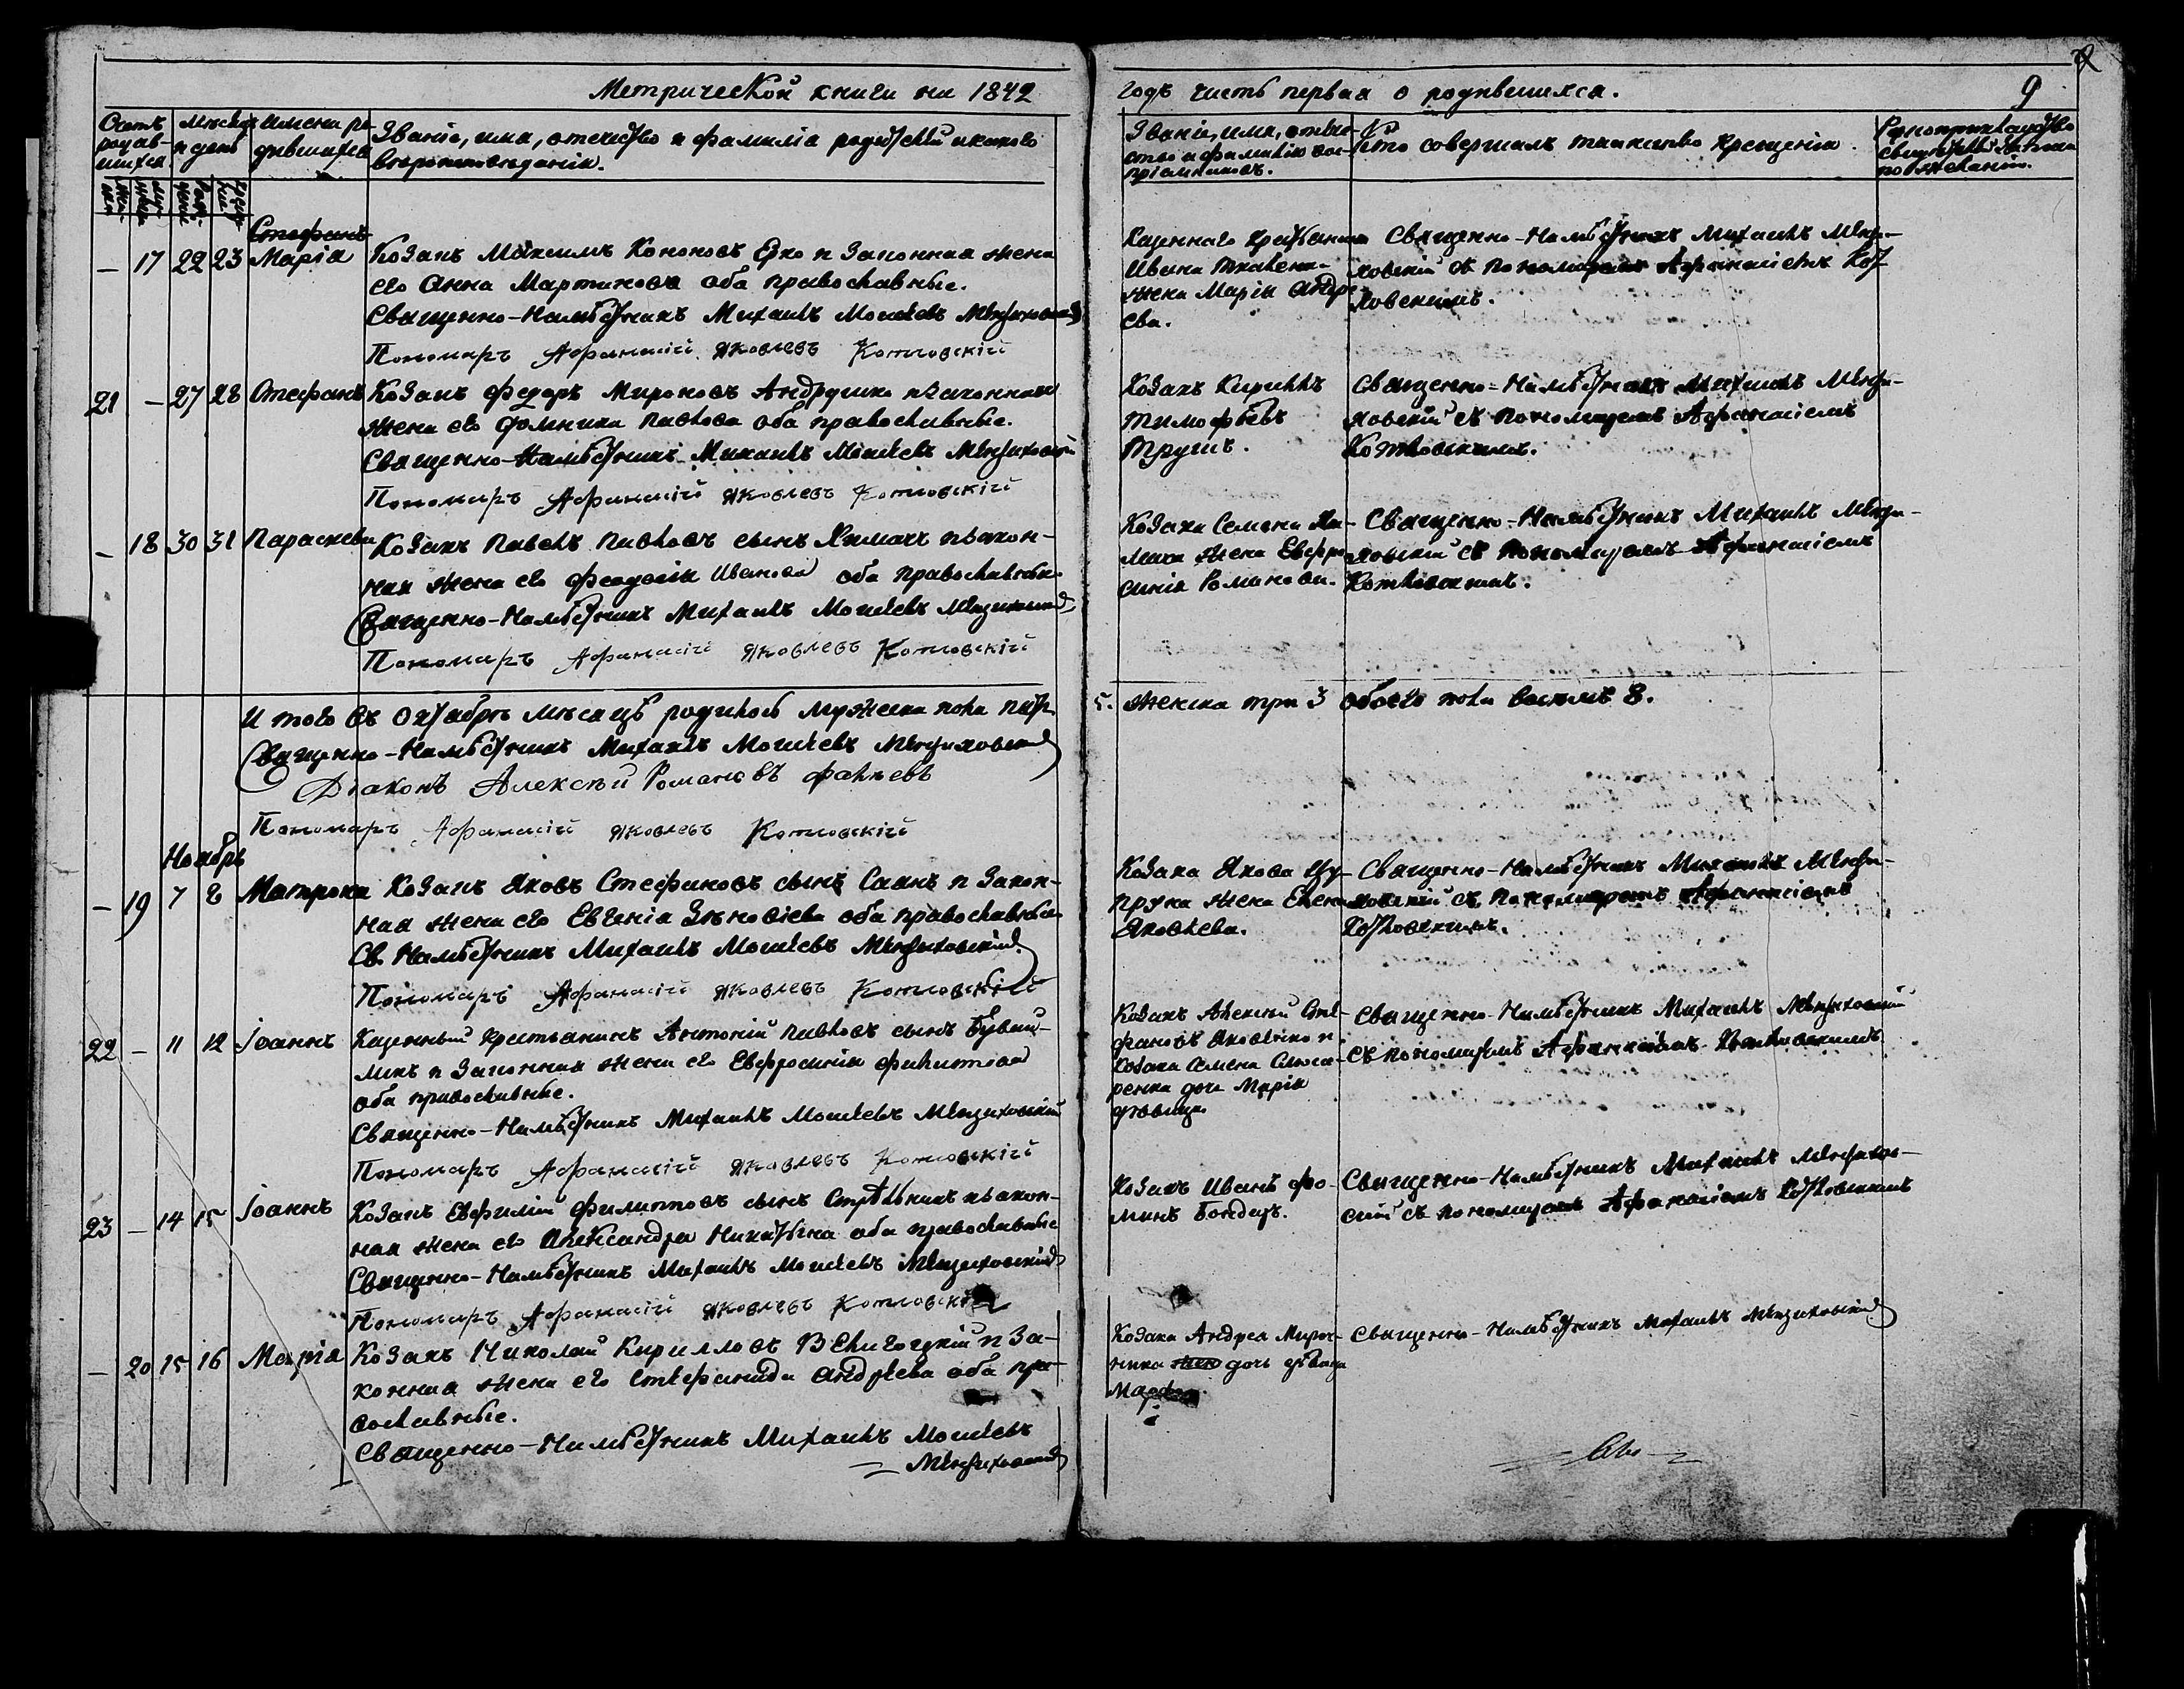 Метрической книги на 1842
Счетъ родив-шихся
Мѣсяцъ и день
Имена ро-дившихся
Званіе, имя, отечество и фамилія родителей и какого
вѣроисповѣданія.
Стефанъ
— 17 22 23 Марія Козакъ Максимъ Кононовъ Ерко и законная жена
его Анна Мартинова оба православные.
Священно-Намѣстникъ Михаилъ Моисеевъ
Пономаръ Афанасій Яковлевъ Котловскій
21 — 27 28 Стефанъ Козакъ Федоръ Мироновъ Андрушко и законная
жена его Домника Павлова оба православные.
Священно-Намѣстникъ Михаилъ Моисеевъ
Пономаръ Афанасій Яковлевъ Котловскій
— 18 30 31 Параскева Козакъ Павелъ Павловъ сынъ Химачъ и закон-
ная жена его Феодосія Иванова оба православные
Священно-Намѣстникъ Михаилъ Моисеевъ
Пономаръ Афанасій Яковлевъ Котловскій
И того въ Октябрѣ мѣсяцѣ родилось мужеска пола пять
Священно-Намѣстникъ Михаилъ Моисеевъ
Діаконъ Алексѣй Романовъ
Пономаръ Афанасій Яковлевъ Котловскій
Ноябрь
— 19 7 8 Матрона Козакъ Яковъ Стефановъ сынъ Саянъ и закон-
ная жена его Евгенія Зѣновіева оба православные
Св. Намѣстникъ Михаилъ Моисеевъ
Пономаръ Афанасій Яковлевъ Котловскій
22 — 11 12 Іоаннъ Казенный крестьянинъ Антоній Павловъ сынъ
и законная жена его Евфросинія Филиппова
оба православные.
Священно-Намѣстникъ Михаилъ Моисеевъ
Пономаръ Афанасій Яковлевъ Котловскій
23 — 14 15 Іоаннъ Козакъ Евфимій Филипповъ сынъ Стрѣльникъ и закон-
ная жена его Александра Никитина оба православные
Священно-Намѣстникъ Михаилъ Моисеевъ
Пономаръ Афанасій Яковлевъ Котловскій
— 20 15 16 Марія Козакъ Николай Кирилловъ и за-
конная жена его Стефанида Андрѣева оба пра-
вославные.
Священно-Намѣстникъ Михаилъ Моисеевъ
годъ часть первая о родившихся. 9
Званіе, имя, отече-
ство и фамилія вос-
пріемниковъ.
Кто совершалъ таинство крещенія.
Рукоприкладство
свидѣтелей записи
по желанію.
Казеннаго крестьянина
Ивана Ткаченка
жена Марія Андре-
ева.
Священно-Намѣстникъ Михаилъ
съ пономаремъ Афанасіемъ Кот-
ловскимъ.
Козакъ Кириллъ
Тимофѣевъ
Трушъ.
Священно-Намѣстникъ Михаилъ
съ пономаремъ Афанасіемъ
Котловскимъ.
Козака Семена Хи-
мача жена Евфро-
синія Романова.
Священно-Намѣстникъ Михаилъ
съ пономаремъ Афанасіемъ
Котловскимъ.
5. женска три 3 обоего пола восемь 8.
Козака Якова
жена Елена
Яковлева.
Священно-Намѣстникъ Михаилъ
съ пономаремъ Афанасіемъ
Котловскимъ.
Козакъ Алексѣй Сте-
фановъ Яковенко и
козака Семена Слюса-
ренка дочь Марія
дѣвица
Священно-Намѣстникъ Михаилъ
съ пономаремъ Афанасіемъ Котловскимъ
Козакъ Иванъ Фо-
минъ Бондаръ.
Священно-Намѣстникъ Михаилъ
съ пономаремъ Афанасіемъ Котловскимъ
Козака Андрея Мирош-
ника дочь дѣвица
Марфа
Священно-Намѣстникъ Михаилъ